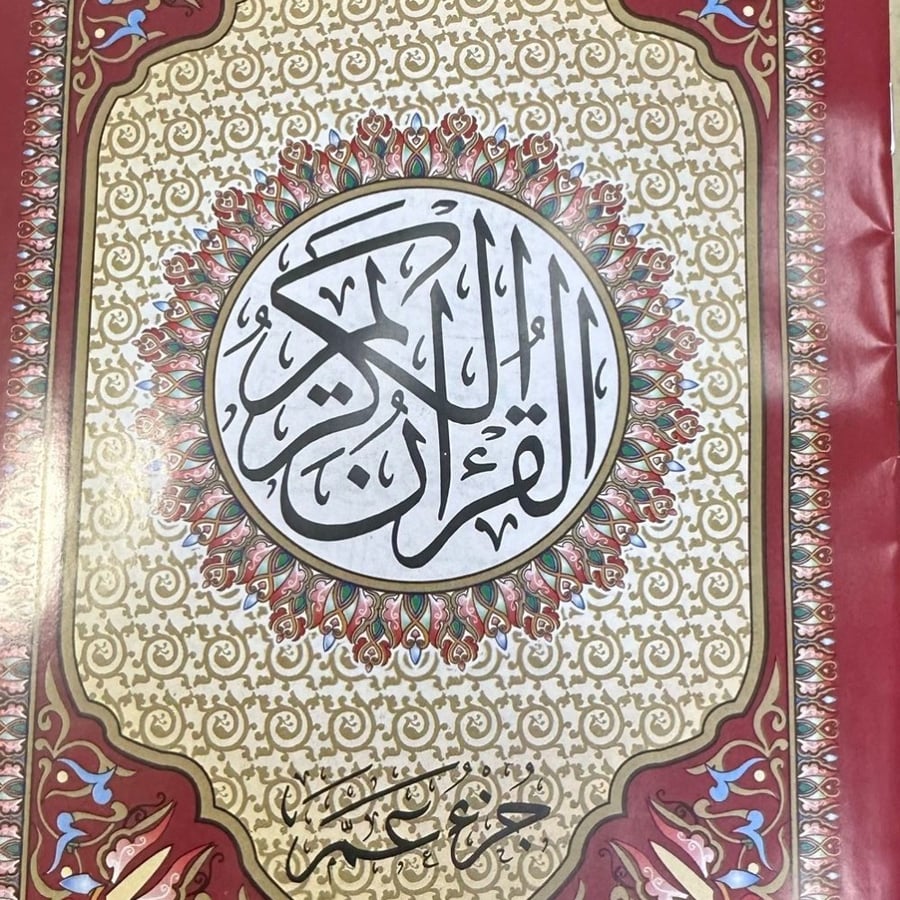 القرآن الكريم
جُزْءُ عَمَّ